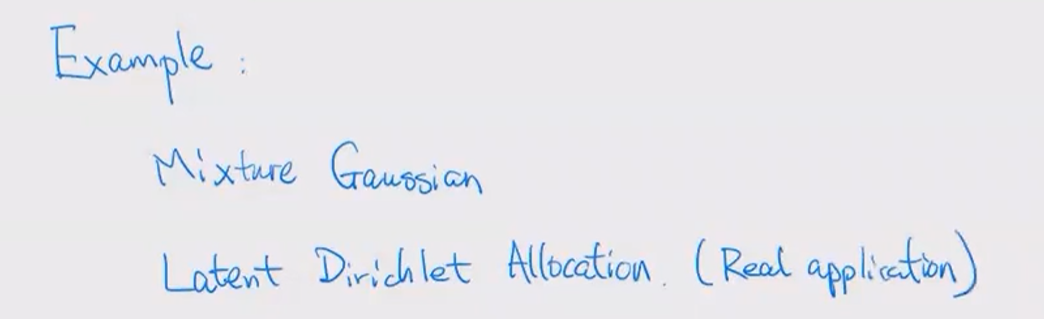 Example :
Mixture Gaussian
Latent Dirichlet Allocation. (Real application)